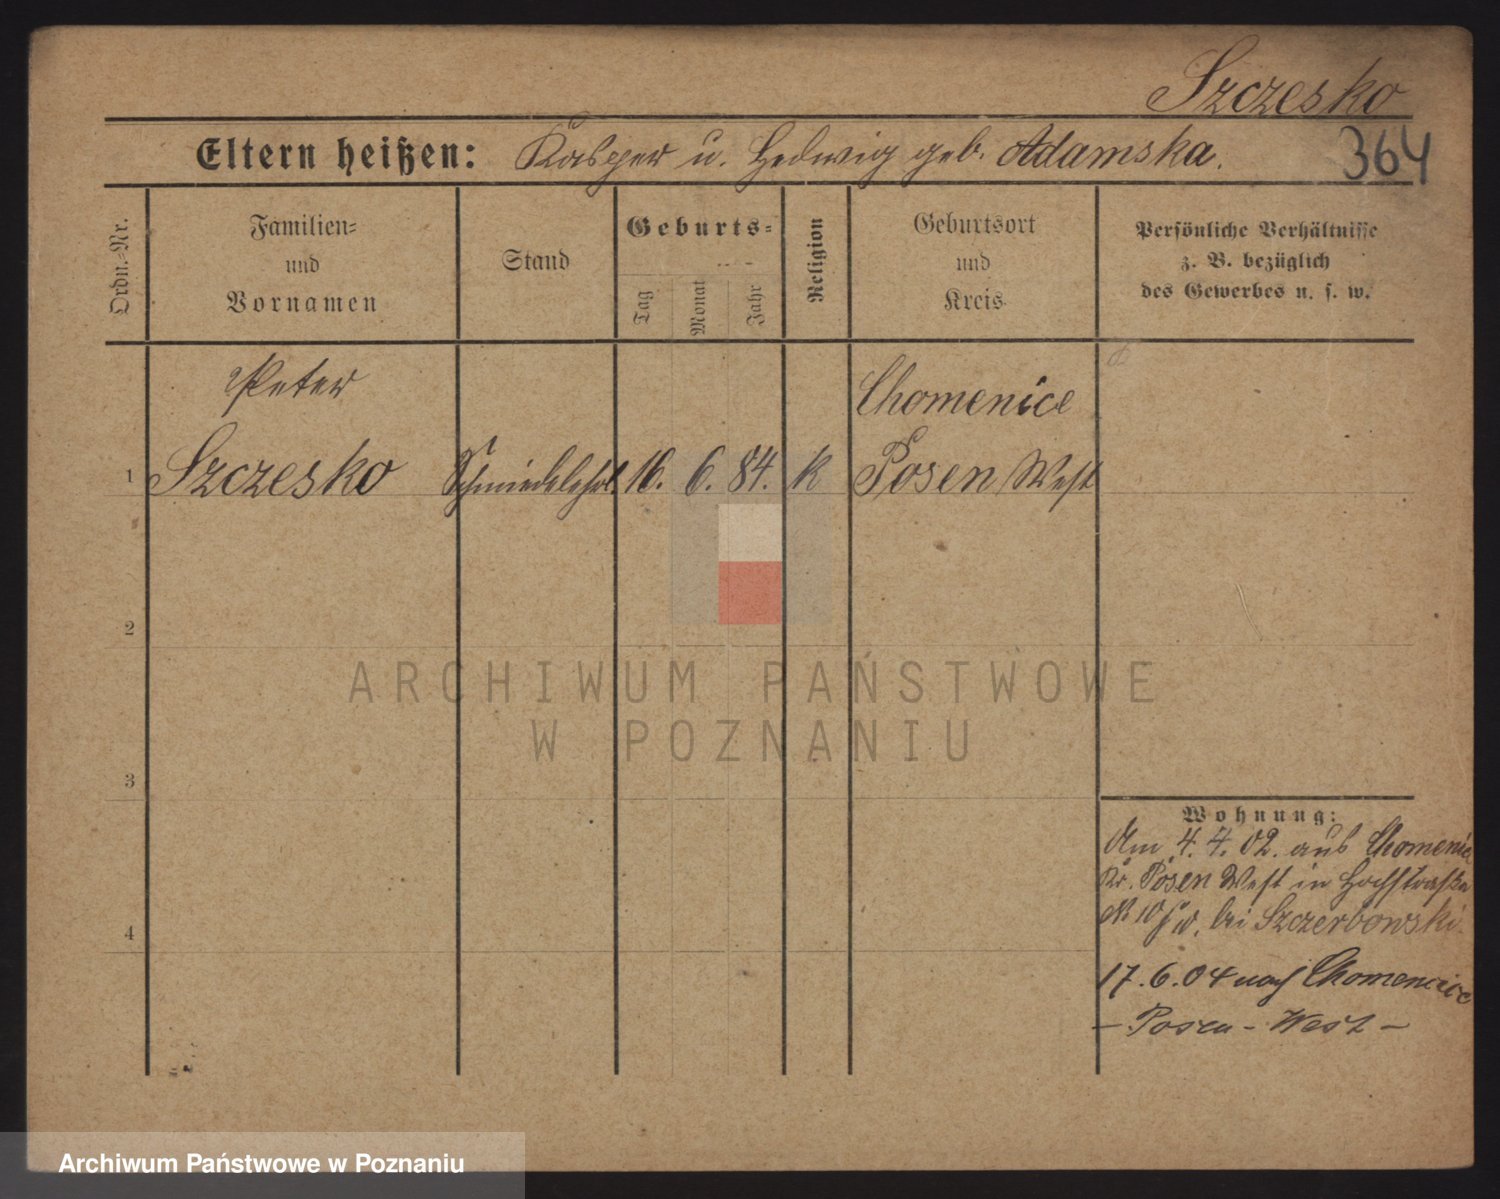 Szczesko
Eltern heißen: Kasper u. Hedwig geb. Adamska.
364
Ordn.-Nr.
Familien-
und
Vornamen
Stand
Geburts-
Tag
Monat
Jahr
Religion
Geburtsort
und
Kreis
Persönliche Verhältnisse
z. B. bezüglich
des Gewerbes u. s. w.
Peter
Chomenice
1 Szczesko Schmiedelehrl. 16. 6. 84. k Posen West
2
ARCHIWUM PAŃSTWOWE
W POZNANIU
3
Wohnung:
Am 4. 7. 02. aus Chomenice
Kr. Posen West in Hochstraße
N 10 bei Szczerbowski.
4
17. 6. 04 nach Chomenice
– Posen - West –
Archiwum Państwowe w Poznaniu